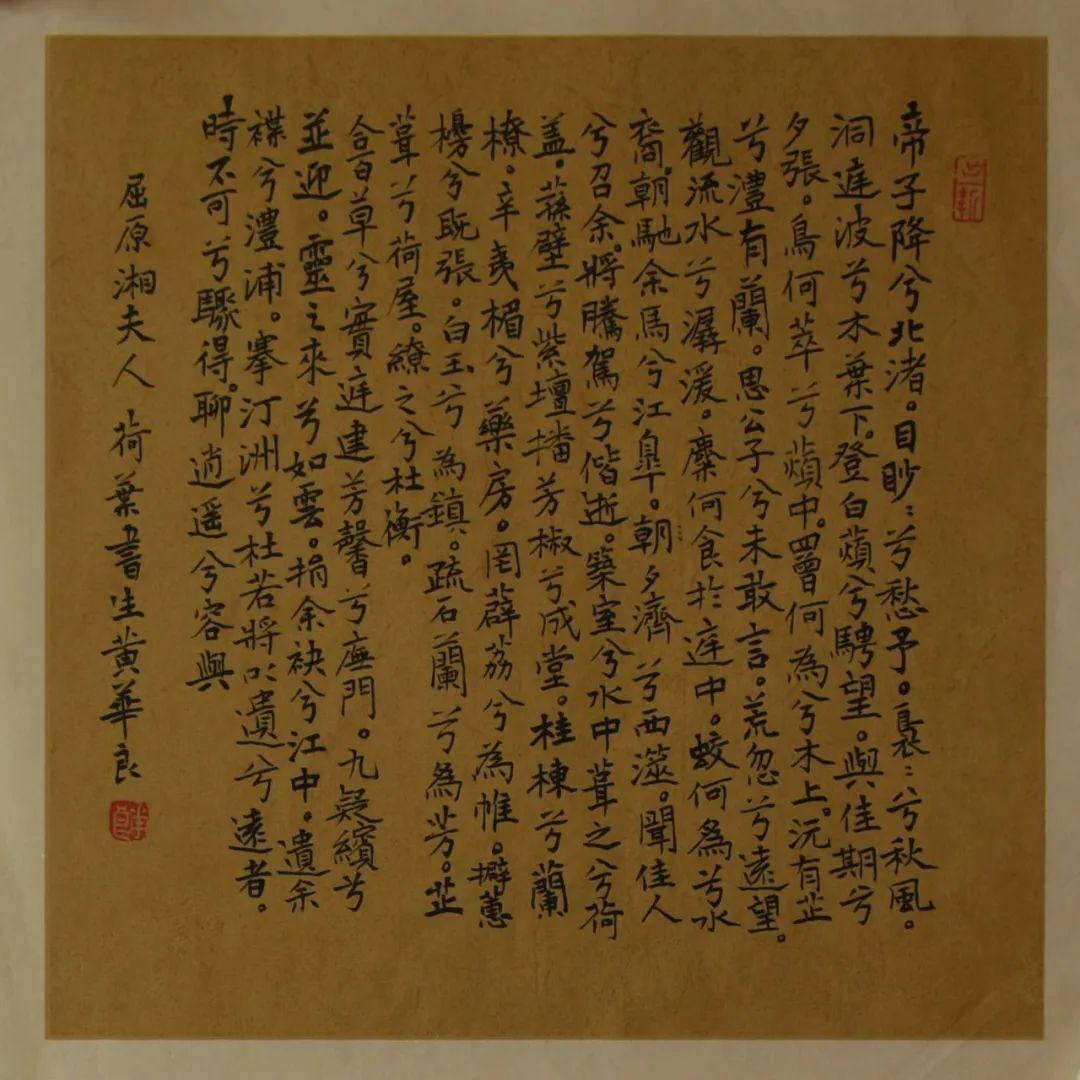 帝子降兮北渚。目眇〻兮愁予。裊〻兮秋風。
洞庭波兮木葉下。登白薠兮騁望。與佳期兮
夕張。鳥何萃兮薠中。罾何為兮木上。沅有芷
兮澧有蘭。思公子兮未敢言。荒忽兮遠望。
觀流水兮潺湲。麋何食於庭中。蛟何為兮水
裔。朝馳余馬兮江皐。朝夕濟兮西澨。聞佳人
兮召余。將騰駕兮偕逝。築室兮水中葺之兮荷
盖。蓀壁兮紫壇播芳椒兮成堂。桂棟兮蘭
橑。辛夷楣兮藥房。罔薜荔兮為帷。擗蕙
櫋兮既張。白玉兮為鎮。疏石蘭兮為芳。芷
葺兮荷屋。繚之兮杜衡。
合百草兮實庭建芳馨兮廡門。九疑繽兮
並迎。靈之來兮如雲。捐余袂兮江中。遺余
褋兮澧浦。搴汀洲兮杜若將以遺兮遠者。
時不可兮驟得。聊逍遥兮容與
屈原湘夫人 荷葉書生黄華良